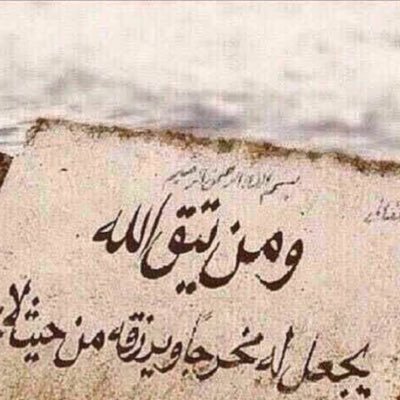 بسم الله الرحمن الرحيم
ومن يتق الله
يجعل له مخرجًا ويرزقه من حيث لا